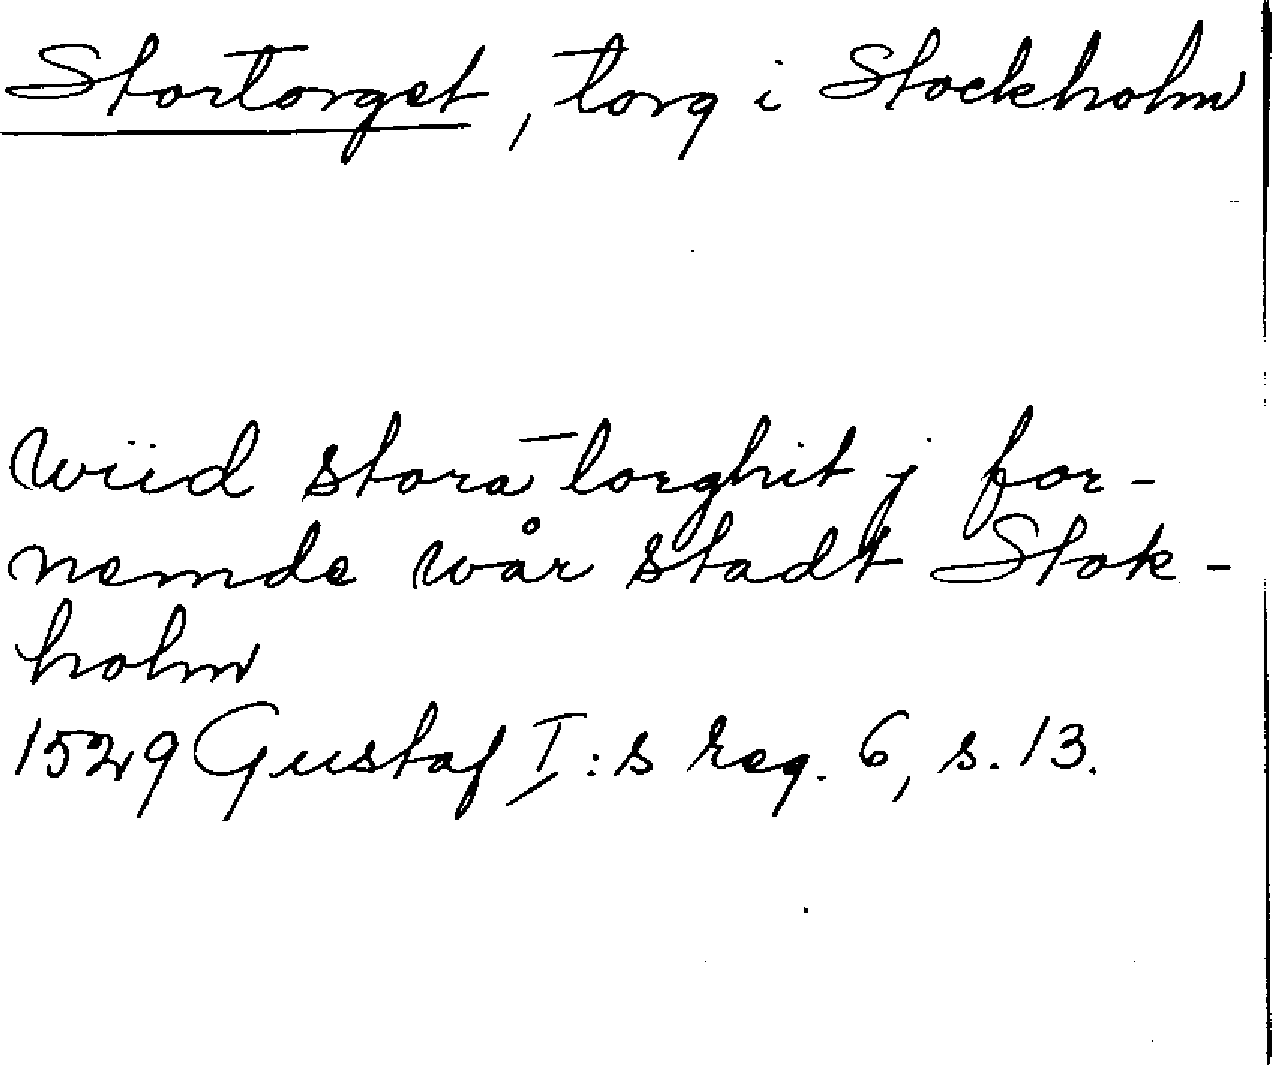 Stortorget, torg i Stockholm
Wiid stora torghit j for-
nemde wår stadt Stok-
holm
1529 Gustaf I:s reg. 6, s. 13.